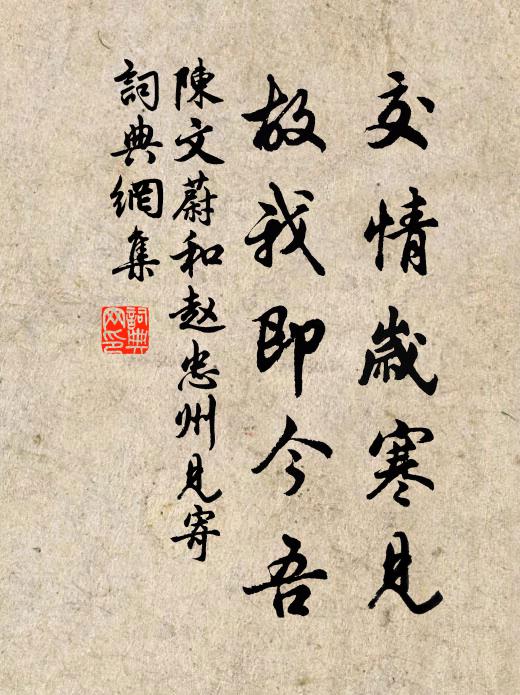 交情歲寒見
故我即今吾
陳文蔚和赵忠州見寄
詞典網集
詞典網印